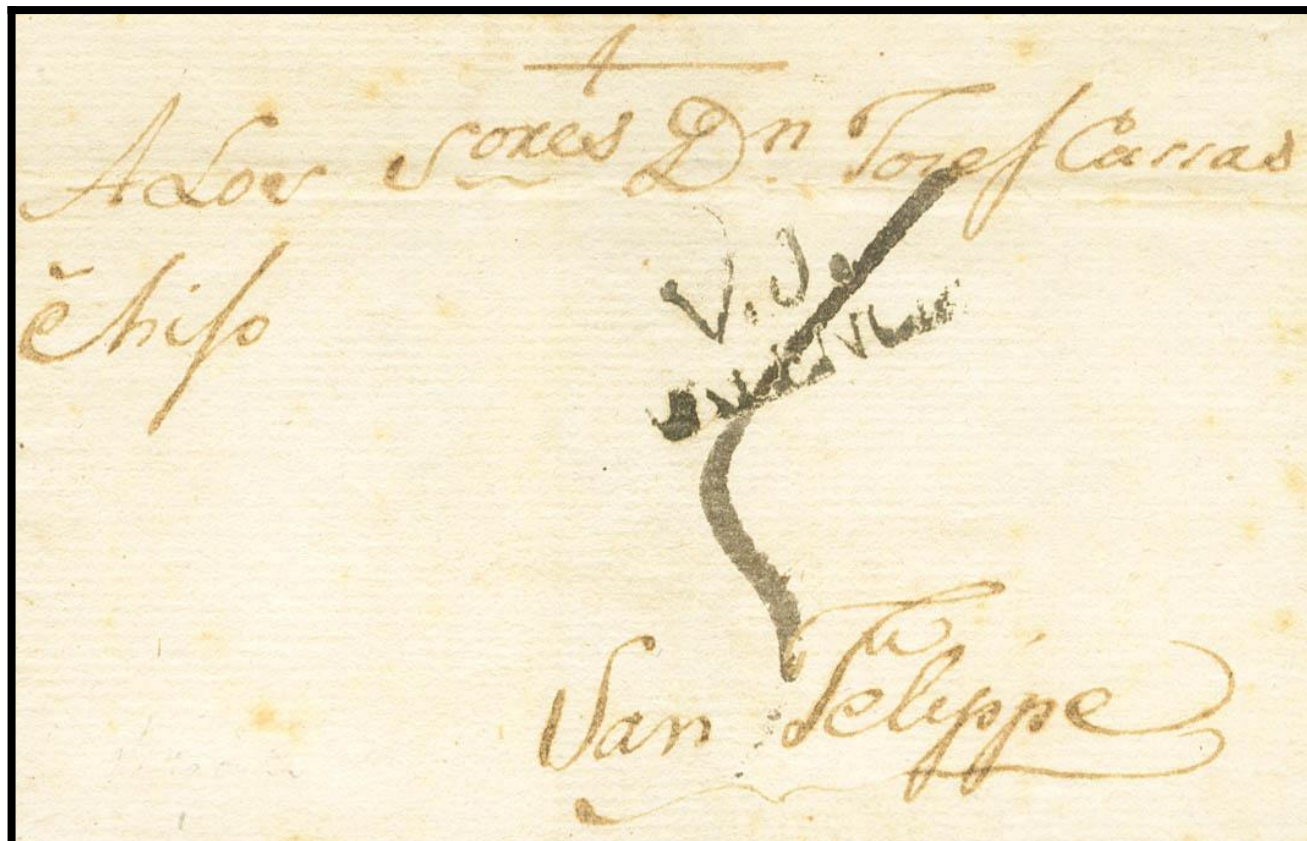 A Los S.ores Dn. Josef Carras
è hijo
V. J.
San Felippe